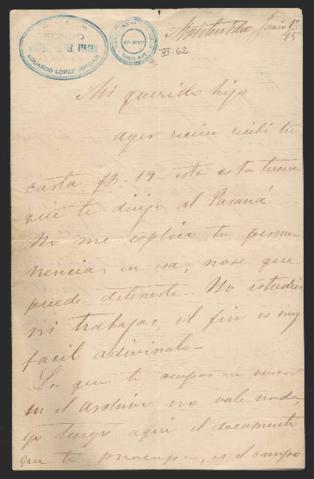 FONDO
EDUARDO LOPEZ JORDAN
Montevideo Junio 1º
95
VI. 62
Mi querido hijo
ayer recien recibi tu
carta fh. 19. esta es la tercera
que te dirijo al Paraná
No me esplico tu perma
nencia en esa, nose que
puede detenerte. No estudias
ni trabajas, el fin es muy
facil adivinalo.
Lo que te ocupas en
en el Archivo no vale nada,
yo tengo aquí el documento
que te preocupa, es el campo